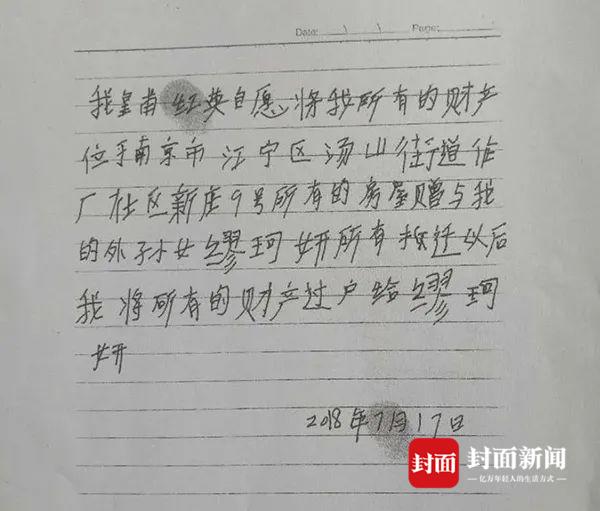 Date: \ \ Page:
我皇甫红英自愿、将我所有的财产
位于南京市江宁区汤山街道作
厂社区新庄9号所有的房屋赠与我
的外孙女缪珂妍所有拆迁以后
我将所有的财产过户给缪珂
妍
2018年7月17日
封面 封面新闻
—亿万年轻人的生活方式—